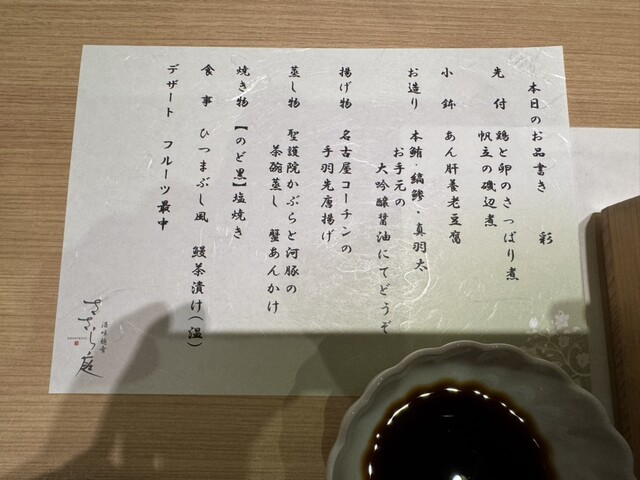 本日のお品書き 彩
先 付 鶏と卵のさっぱり煮
帆立の磯辺煮
小 鉢 あん肝養老豆腐
お造り 本鮪・縞鯵・真羽太
お手元の
大吟醸醤油にてどうぞ
揚げ物 名古屋コーチンの
手羽先唐揚げ
蒸し物 聖護院かぶらと河豚の
茶碗蒸し 蟹あんかけ
焼き物 【のど黒】塩焼き
食 事 ひつまぶし風 鰻茶漬け(温)
デザート フルーツ最中